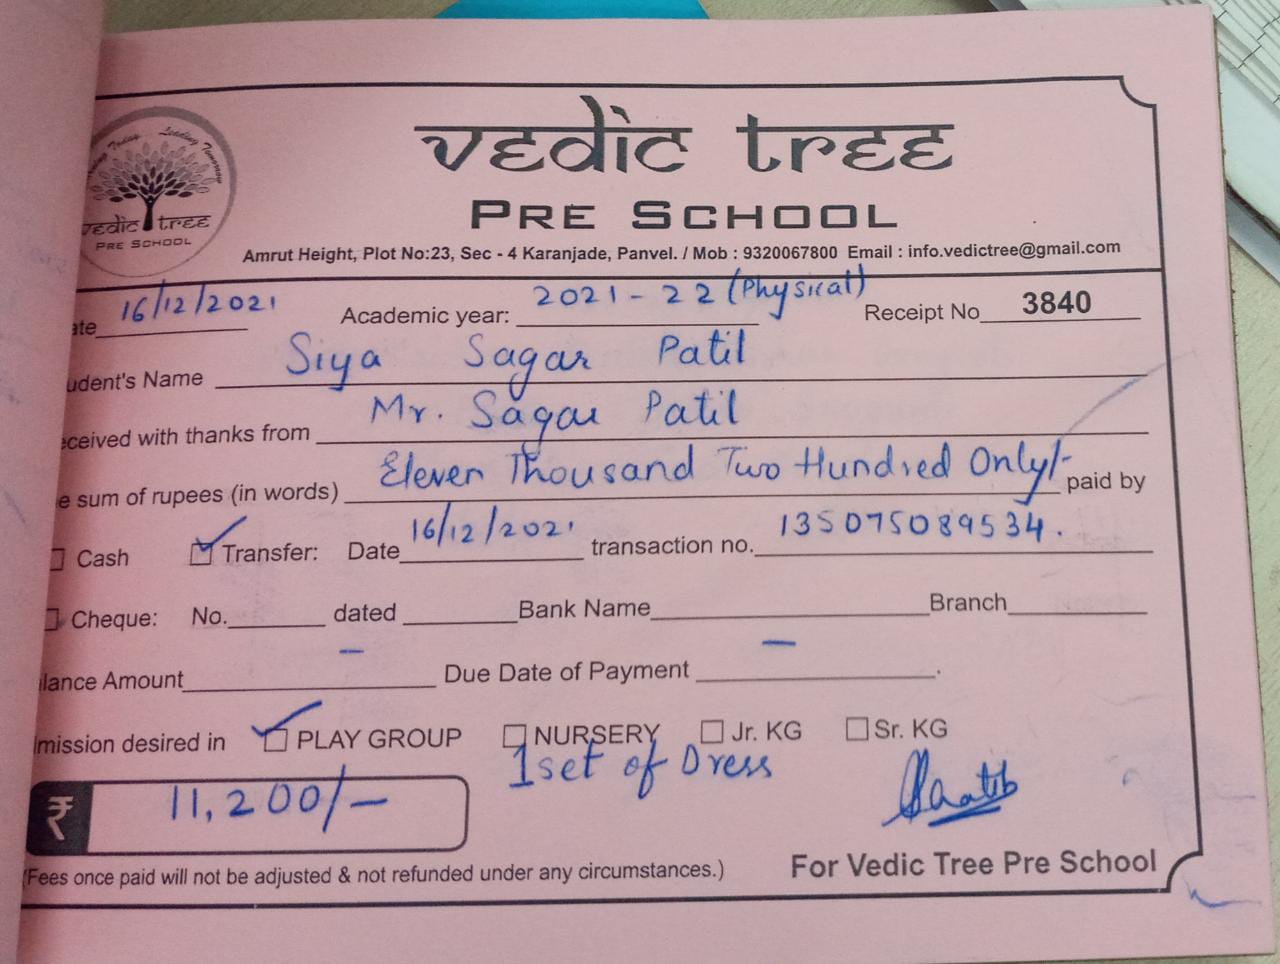 vedic tree
PRE SCHOOL
Leading Tomorrow
vedic tree
PRE SCHOOL
Amrut Height, Plot No:23, Sec - 4 Karanjade, Panvel. / Mob : 9320067800 Email : info.vedictree@gmail.com
ate 16/12/2021 Academic year: 2021-22 (Physical) Receipt No 3840
udent's Name Siya Sagar Patil
eceived with thanks from Mr. Sagar Patil
e sum of rupees (in words) Eleven Thousand Two Hundred Only/- paid by
Cash Transfer: Date 16/12/2021 transaction no. 135075089534.
Cheque: No. dated Bank Name Branch
lance Amount - Due Date of Payment - .
mission desired in PLAY GROUP NURSERY Jr. KG Sr. KG
1 set of Dress
₹ 11,200/-
(Fees once paid will not be adjusted & not refunded under any circumstances.) For Vedic Tree Pre School